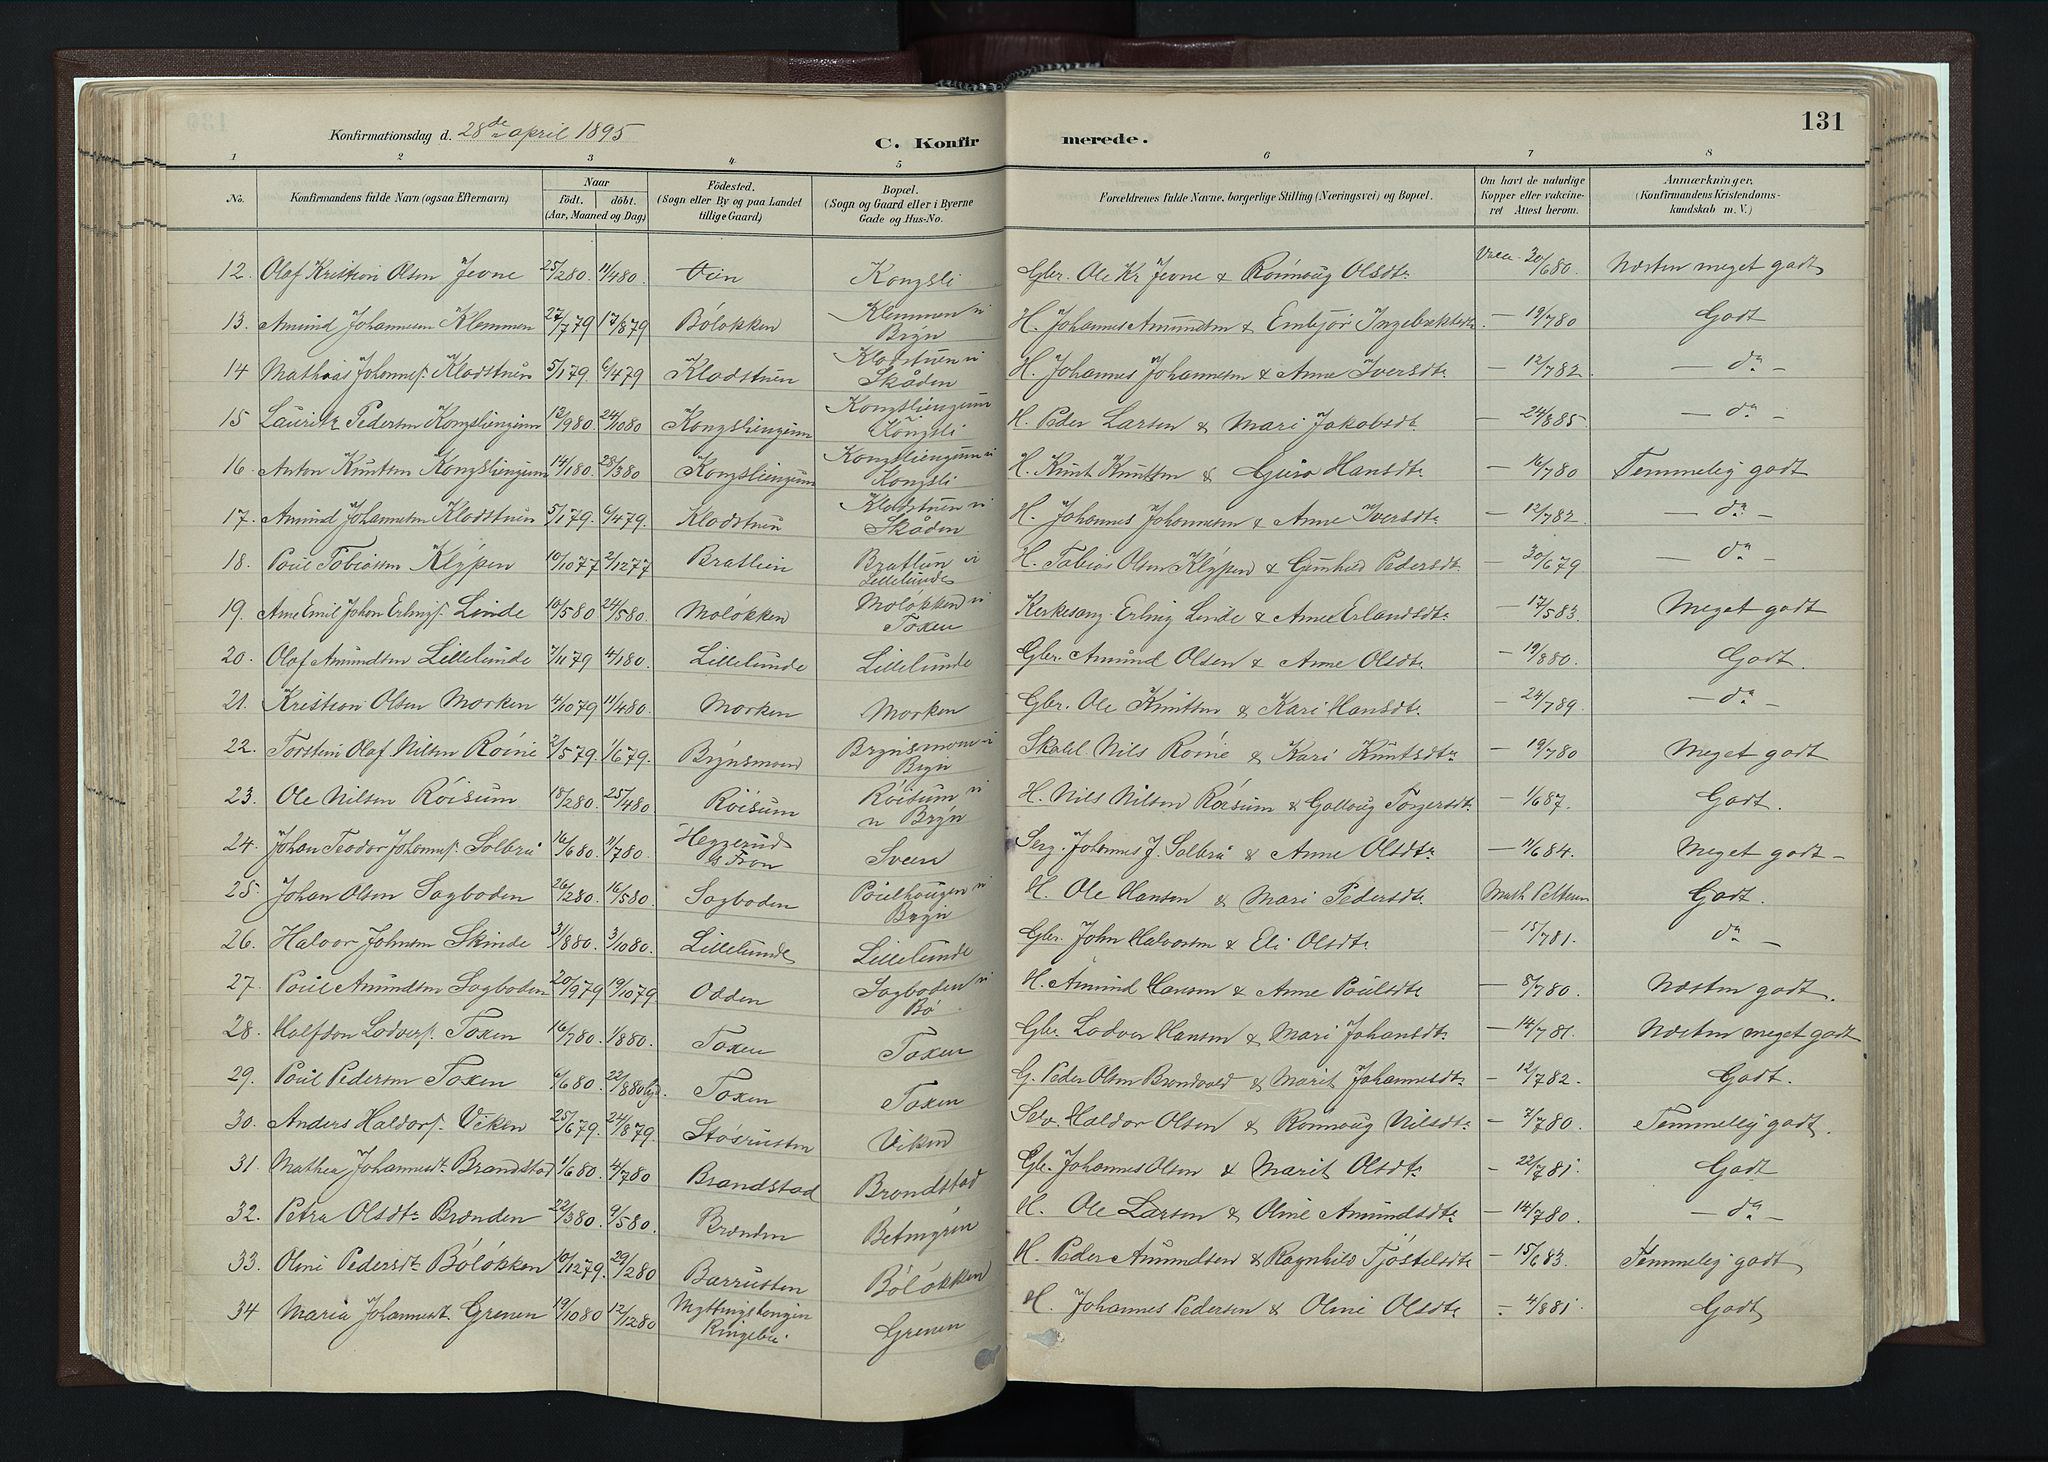 131
Konfirmationsdag d. 28de april 1895
C. Konfirmerede.
1 2 3 4 5 6 7 8
No. Konfirmandens fulde Navn (ogsaa Efternavn) Naar födt. döbt. (Aar, Maaned og Dag) Födested. (Sogn eller By og paa Landet tillige Gaard) Bopæl. (Sogn og Gaard eller i Byerne Gade og Hus-No. Forældrenes fulde Navne, borgerlige Stilling (Næringsvei) og Bopæl. Om havt de naturlige Kopper eller vakcineret Attest herom. Anmærkninger. (Konfirmandens Kristendomskundskab m. V.)
12. Olaf Kristian Olsen Jevne 25/2 80. 11/4 80. Kongsli Gbr. Ole Kr Jevne & Rönnoug Olsdtr Vacc. 20/6 80. Næsten meget godt
13. Amund Johannesen Klemmen 27/7 79 17/8 79 Bölökken Klemmen u Bryn H. Johannes Amundsen & Embjör Ingebrektsdtr — 19/7 80 Godt
14 Mathias Johannesf. Kladstuen 5/1 79. 6/4 79 Kladstuen Kladstuen u Skåden H. Johannes Johannesen & Anne Iversdtr — 12/7 82. — do —
15 Lauritz Pedersen Kongsliengum 12/9 80. 24/10 80 Kongsliengum Kongsliengum Kongsli H. Peder Larsen & Mari Jakobsdtr — 24/8 85 — do
16. Anton Knutsen Kongsliengum 14/1 80. 28/3 80 Kongsliengum Kongsliengum u Kongsli H. Knut Knutsen & Guro Hansdtr — 16/7 80 Temmelig godt
17. Amund Johannesen Kladstuen 5/1 79. 6/4 79. Kladstuen Kladstuen u Skåden H. Johannes Johannesen & Anne Iversdtr — 12/7 82 — do —
18. Poul Tobiassen Klypen 10/10 77 2/12 77 Bratlien Bratlien u Lillelunde H. Tobias Olsen Klypen & Gunhild Pedersdtr — 30/6 79 — do —
19. Arne Emil Johan Erlingsf. Linde 10/5 80 24/5 80. Molökken Molökken u Toxen Kirkesang. Erling Linde & Anne Erlandsdtr — 17/5 83. Meget godt
20. Olaf Amundsen Lillelunde 7/11 79 4/1 80. Lillelunde Lillelunde Gbr. Amund Olsen & Anne Olsdtr — 19/8 80. Godt.
21. Kristian Olsen Morken 4/10 79 11/4 80. Morken Morken Gbr. Ole Knutsen & Kari Hansdtr — 24/7 89. — do —
22. Torstein Olaf Nilsen Röine 2/5 79. 1/6 79. Brynsmoen Brynsmoen i Bryn Skolel. Nils Röine & Kari Knutsdtr — 19/7 80 Meget godt
23. Ole Nilsen Röisum 18/2 80. 25/4 80 Röisum Röisum u Bryn H. Nils Nilsen Röisum & Gollaug Torgersdtr — 1/6 87. Godt.
24. Johan Teodor Johannesf. Solbru 16/6 80. 11/7 80. Heggerud S Fron Sveen Serg. Johannes J. Solbru & Anne Olsdtr — 11/6 84. Meget godt —
25. Johan Olsen Sagboden 26/2 80. 16/5 80. Sagboden Poulhougen u Bryn H. Ole Hansen & Mari Pedersdtr Math Pettersen Godt.
26. Halvor Johnsen Skinde 31/8 80. 3/10 80. Lillelunde Lillelunde Gbr. John Halvorsen & Eli Olsdtr — 15/7 81. do —
27. Poul Amundsen Sagboden 20/9 79 19/10 79 Odden Sagboden u Bö H. Amund Hansen & Anne Poulsdtr — 8/7 80. Næsten godt.
28. Halfdan Lodversf. Toxen 16/7 80. 1/8 80. Toxen Toxen Gbr. Lodver Hansen & Mari Johansdtr — 14/7 81. Næsten meget godt
29. Poul Pedersen Toxen 6/6 80. 22/8 80 Toxen Toxen G. Peder Olsen Brandvold & Marit Johannesdtr — 12/7 82. Godt.
30. Anders Haldorsf. Viken 25/6 79. 24/8 79. Stösrusten Viken Selv. Haldor Olsen & Rönnoug Nilsdtr — 7/7 80. Temmelig godt.
31. Mathea Johannesdtr Brandstad 1/6 80. 4/7 80 Brandstad Brandstad Gbr. Johannes Olsen & Marit Olsdtr — 22/7 81. Godt
32. Petra Olsdtr Brænden 22/3 80. 9/5 80. Brænden H. Ole Larsen & Oline Amundsdtr — 14/7 80. — do —
33. Oline Pedersdtr Bölökken 10/12 79. 29/2 80 Barrusten Bölökken H. Peder Amundsen & Ragnhild Tjöstelsdtr — 15/6 83. Temmelig godt
34 Maria Johannesdt. Grenen 19/10 80 12/12 80 Ringebu. Grenen H. Johannes Pedersen & Oline Olsdtr — 4/8 81. Godt